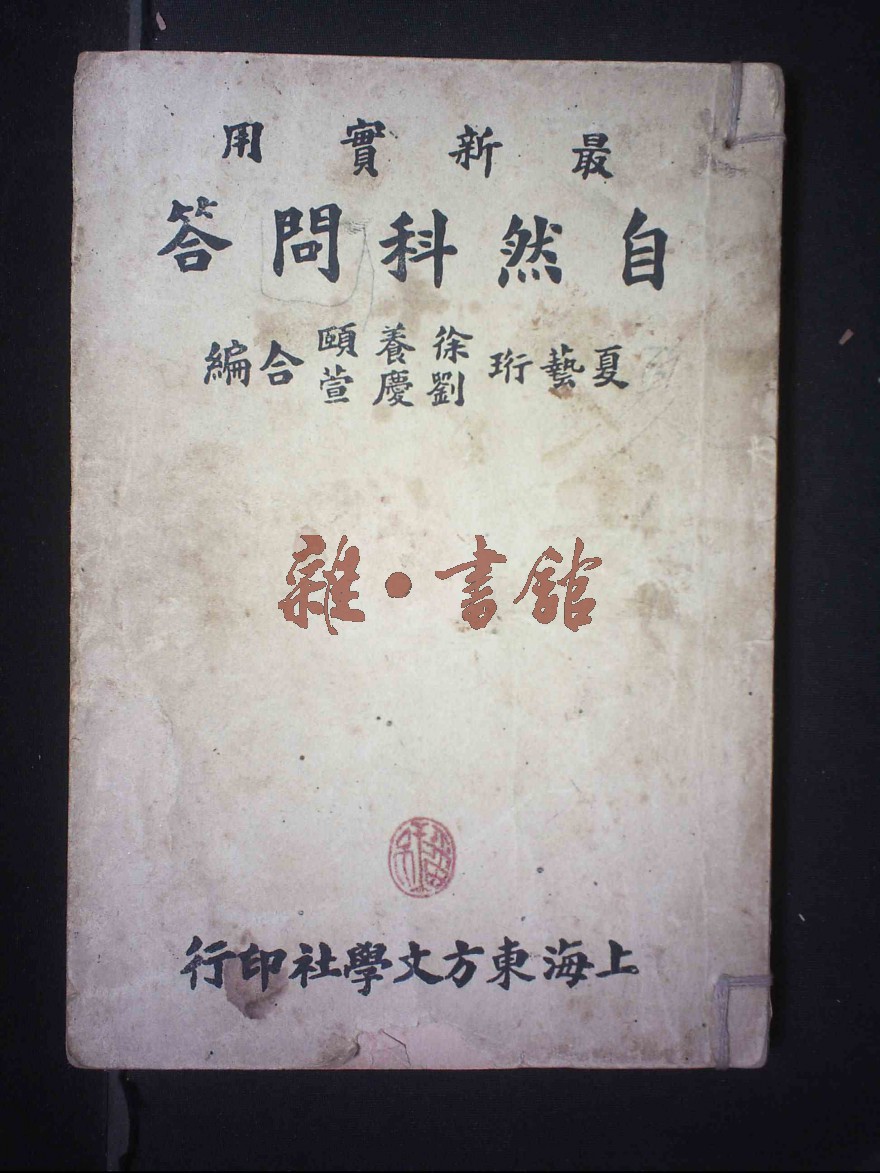 最新實用
自然科問答
夏藝珩 徐養頤 劉慶萱 合編
雜·書館
上海東方文學社印行